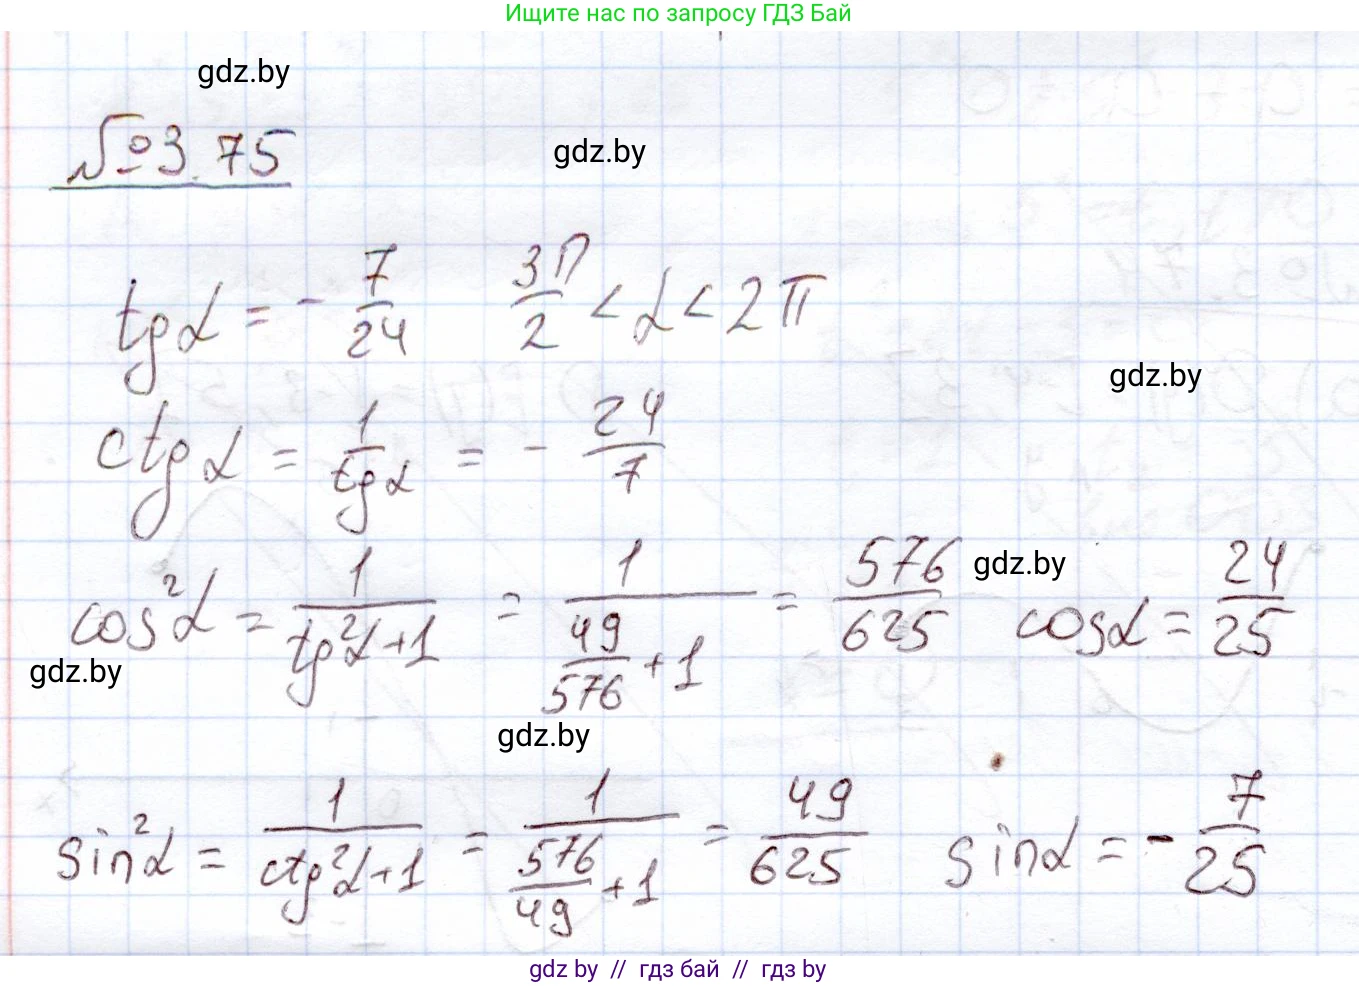 Ищите нас по запросу ГДЗ Бай
gdz.by
№3.75
gdz.by
tgα = - 7/24   3π/2 < α < 2π
gdz.by
ctgα = 1/tgα = - 24/7
cos²α = 1/(tg²α+1) = 1/(49/576 + 1) = 576/625 gdz.by cosα = 24/25
gdz.by
gdz.by
sin²α = 1/(ctg²α+1) = 1/(576/49 + 1) = 49/625   sinα = - 7/25
gdz by // гдз бай // гдз by